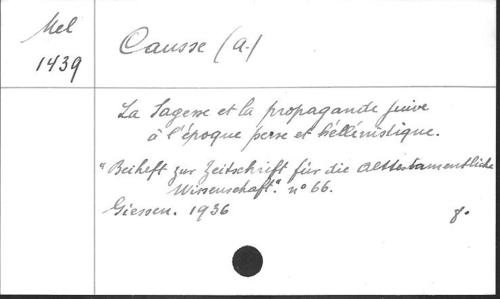 Mel
1439
Causse (A.)
La Sagesse et la propagande juive
à l'époque perse et hellénistique.
"Beiheft zur Zeitschrift für die Alttestamentliche
Wissenschaft". n° 66.
Giessen. 1936
8°